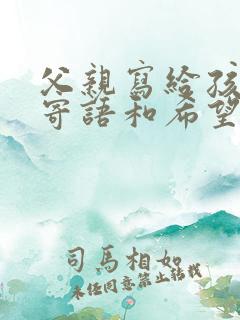 父親寫給孩
寄語和希望
司馬相如
未经同意禁止转载